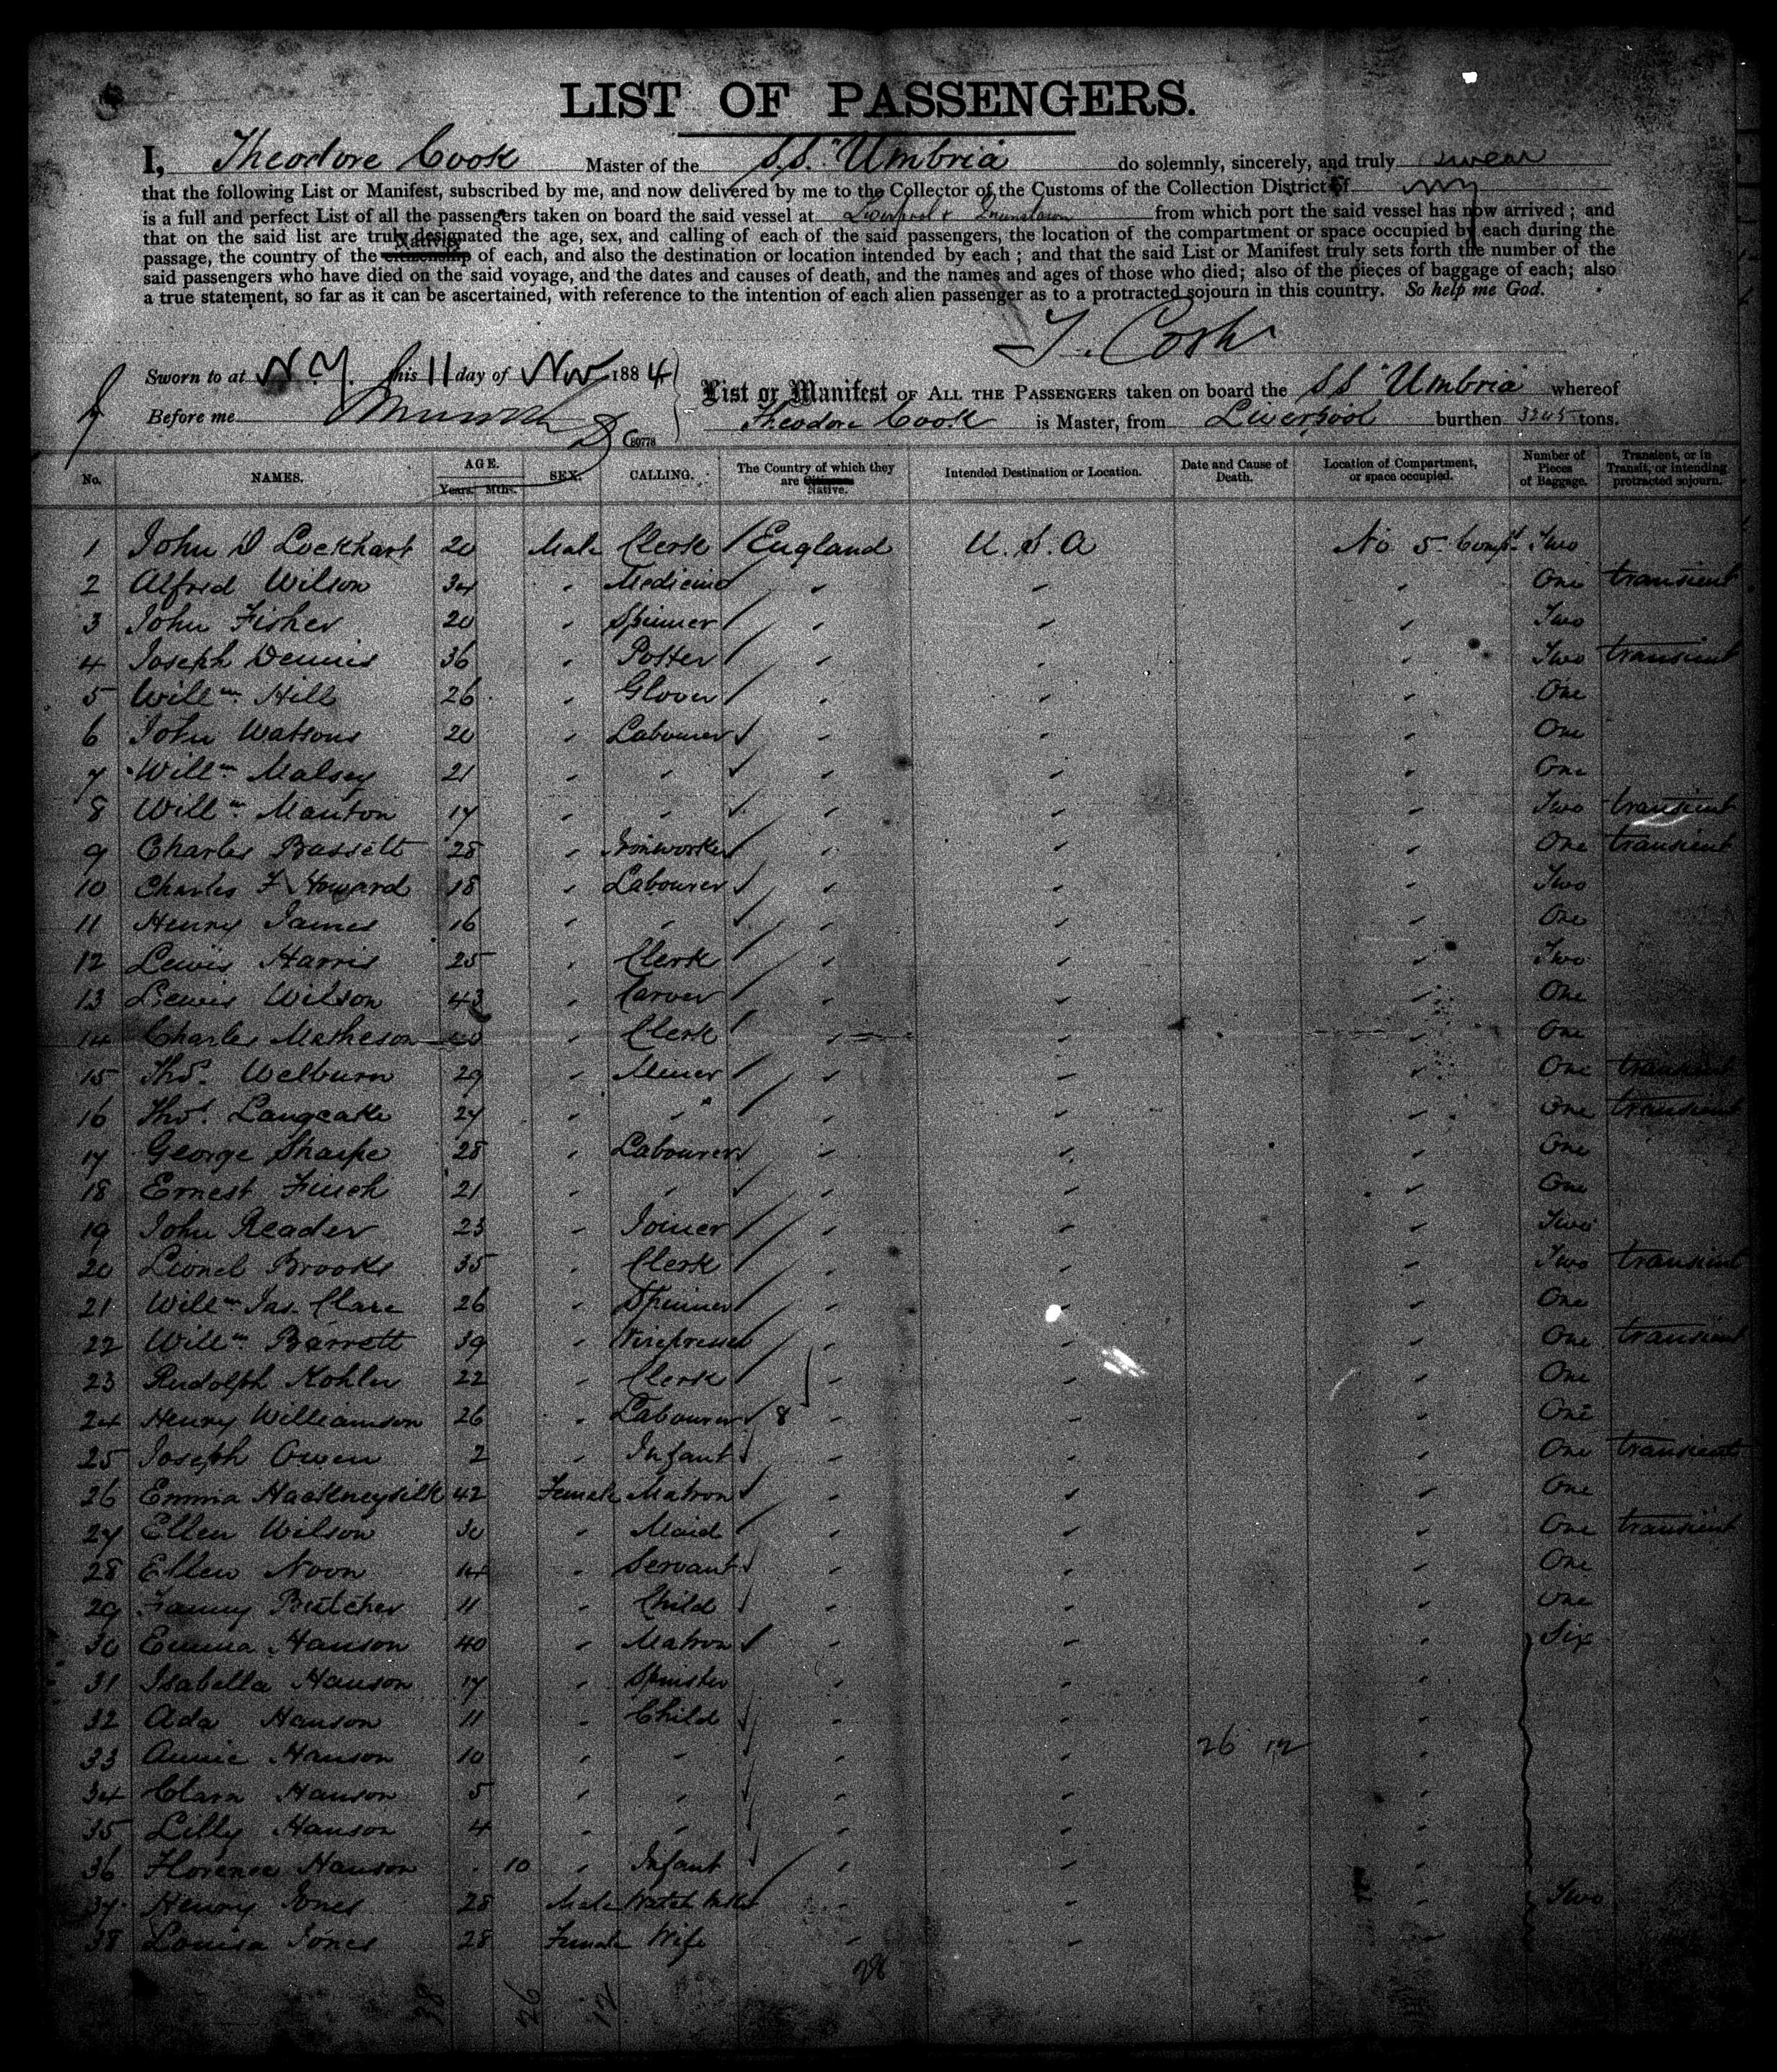 LIST OF PASSENGERS.
I, Theodore Cook Master of the S.S. "Umbria do solemnly, sincerely, and truly swear
that the following List or Manifest, subscribed by me, and now delivered by me to the Collector of the Customs of the Collection District of NY
is a full and perfect List of all the passengers taken on board the said vessel at Liverpool & Queenstown from which port the said vessel has now arrived; and
that on the said list are truly designated the age, sex, and calling of each of the said passengers, the location of the compartment or space occupied by each during the
passage, the country of the citizenship Nativity of each, and also the destination or location intended by each; and that the said List or Manifest truly sets forth the number of the
said passengers who have died on the said voyage, and the dates and causes of death, and the names and ages of those who died; also of the pieces of baggage of each; also
a true statement, so far as it can be ascertained, with reference to the intention of each alien passenger as to a protracted sojourn in this country. So help me God.
T. Cook
Sworn to at N.Y. this 11 day of Nov 1884
Before me
List or Manifest OF ALL THE PASSENGERS taken on board the SS "Umbria" whereof
Theodore Cook is Master, from Liverpool burthen 3245 tons.
No. NAMES. AGE. Years. Mths. SEX. CALLING. The Country of which they are Citizens Native. Intended Destination or Location. Date and Cause of Death. Location of Compartment, or space occupied. Number of Pieces of Baggage. Transient, or in Transit, or intending protracted sojourn.
1 John D Lockhart 20 Male Clerk England U.S.A No 5 Compt Two
2 Alfred Wilson 34 " Medicine " " " One transient
3 John Fisher 20 " Spinner " " " Two
4 Joseph Dennis 36 " Potter " " " Two transient
5 Willm Hill 26 " Glover " " " One
6 John Watsons 20 " Labourer " " " One
7 Willm Malsey 21 " " " " " One
8 Willm Manton 17 " " " " " Two transient
9 Charles Bassett 28 " Ironworker " " " One transient
10 Charles F Howard 18 " Labourer " " " Two
11 Henry James 16 " " " " " One
12 Lewis Harris 25 " Clerk " " " Two
13 Lewis Wilson 43 " Carver " " " One
14 Charles Matheson 40 " Clerk " " " One
15 Thos. Welburn 29 " Miner " " " One transient
16 Thos. Langcake 27 " " " " " One transient
17 George Sharpe 28 " Labourer " " " One
18 Ernest Finch 21 " " " " " One
19 John Reader 23 " Joiner " " " Two
20 Lionel Brooks 35 " Clerk " " " Two transient
21 Willm Jas. Clare 26 " Spinner " " " One
22 Willm Barrett 39 " " " " One transient
23 Rudolph Kohler 22 " Clerk " " " One
24 Henry Williamson 26 " Labourer 8 " " " One
25 Joseph Owen 2 " Infant " " " One transient
26 Emma Hackneysilk 42 Female Matron " " " One
27 Ellen Wilson 30 " Maid " " " One transient
28 Ellen Noon 14 " Servant " " " One
29 Fanny Butcher 11 " Child " " " One
30 Emma Hanson 40 " Matron " " " Six
31 Isabella Hanson 17 " Spinster " " "
32 Ada Hanson 11 " Child " " "
33 Annie Hanson 10 " " " " 26 12 "
34 Clara Hanson 5 " " " " "
35 Lilly Hanson 4 " " " " "
36 Florence Hanson 10 " Infant " " "
37 Henry Jones 28 Male Watch Mkr " " " Two
38 Louisa Jones 28 Female Wife " " "
38 26 12